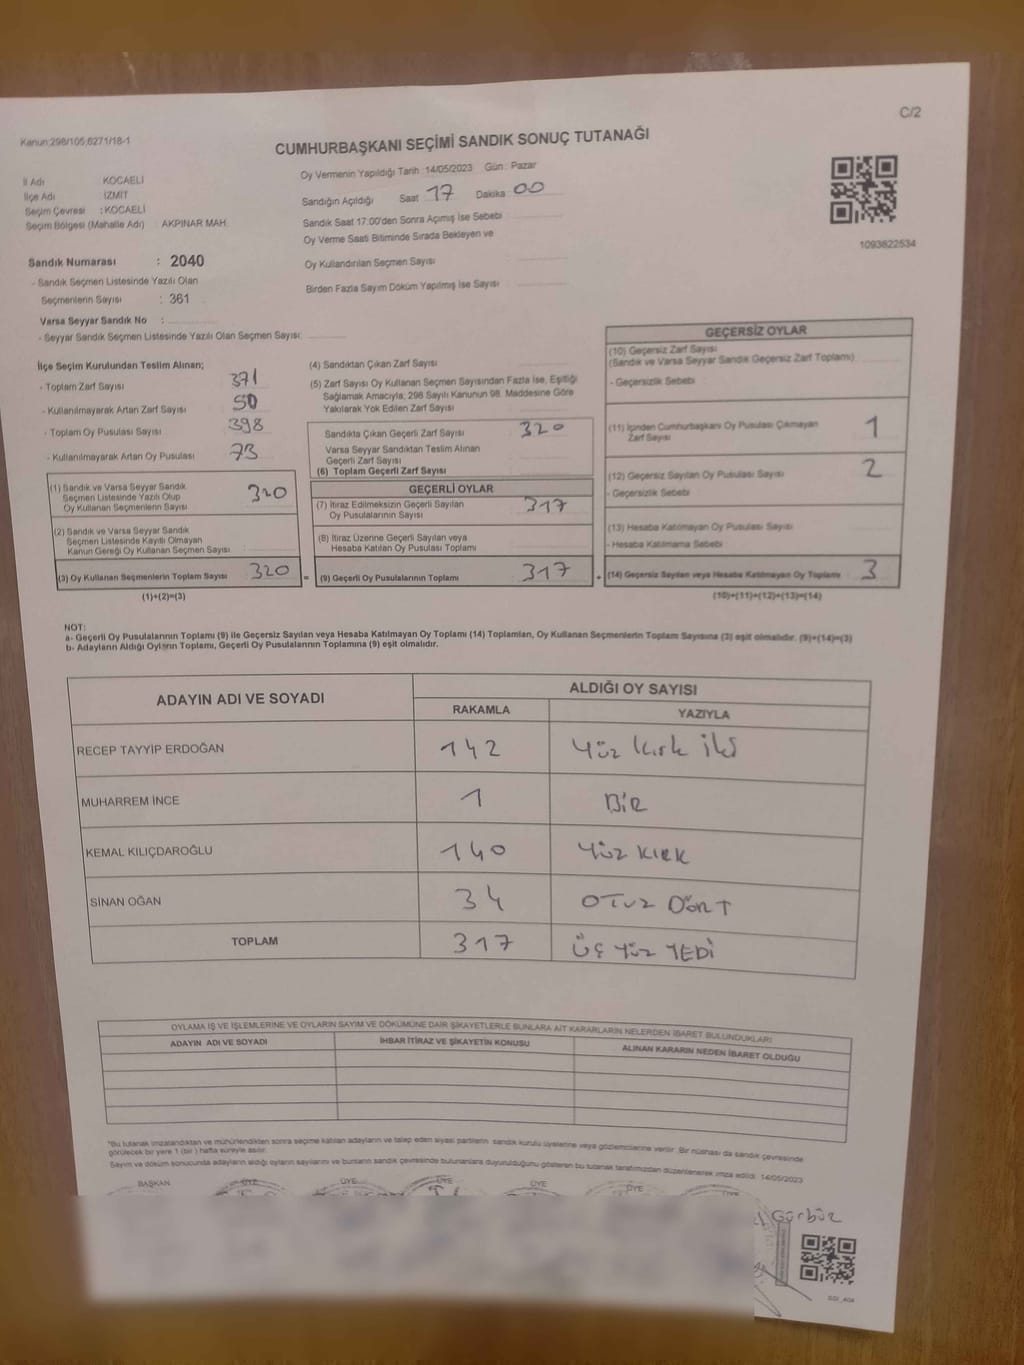 C/2
Kanun;298/105,6271/18-1
CUMHURBAŞKANI SEÇİMİ SANDIK SONUÇ TUTANAĞI
Oy Vermenin Yapıldığı Tarih :14/05/2023 Gün : Pazar
İl Adı KOCAELİ
İlçe Adı İZMİT
Seçim Çevresi : KOCAELİ
Seçim Bölgesi (Mahalle Adı) : AKPINAR MAH.
Sandığın Açıldığı Saat 17 Dakika 00
Sandık Saat 17.00'den Sonra Açımış İse Sebebi
Oy Verme Saati Bitiminde Sırada Bekleyen ve
Oy Kullandırılan Seçmen Sayısı
Birden Fazla Sayım Döküm Yapılmış İse Sayısı
1093822534
Sandık Numarası : 2040
- Sandık Seçmen Listesinde Yazılı Olan
Seçmenlerin Sayısı : 361
Varsa Seyyar Sandık No :
- Seyyar Sandık Seçmen Listesinde Yazılı Olan Seçmen Sayısı:
İlçe Seçim Kurulundan Teslim Alınan;
- Toplam Zarf Sayısı 371
- Kullanılmayarak Artan Zarf Sayısı 50
- Toplam Oy Pusulası Sayısı 398
- Kullanılmayarak Artan Oy Pusulası 73
(1) Sandık ve Varsa Seyyar Sandık
Seçmen Listesinde Yazılı Olup
Oy Kullanan Seçmenlerin Sayısı 320
(2) Sandık ve Varsa Seyyar Sandık
Seçmen Listesinde Kayıtlı Olmayan
Kanun Gereği Oy Kullanan Seçmen Sayısı
(3) Oy Kullanan Seçmenlerin Toplam Sayısı 320
(1)+(2)=(3)
(4) Sandıktan Çıkan Zarf Sayısı
(5) Zarf Sayısı Oy Kullanan Seçmen Sayısından Fazla İse, Eşitliği
Sağlamak Amacıyla; 298 Sayılı Kanunun 98. Maddesine Göre
Yakılarak Yok Edilen Zarf Sayısı
Sandıkta Çıkan Geçerli Zarf Sayısı 320
Varsa Seyyar Sandıktan Teslim Alınan
Geçerli Zarf Sayısı
(6) Toplam Geçerli Zarf Sayısı
GEÇERLİ OYLAR
(7) İtiraz Edilmeksizin Geçerli Sayılan
Oy Pusulalarının Sayısı 317
(8) İtiraz Üzerine Geçerli Sayılan veya
Hesaba Katılan Oy Pusulası Toplamı
= (9) Geçerli Oy Pusulalarının Toplamı 317 +
GEÇERSİZ OYLAR
(10) Geçersiz Zarf Sayısı
(Sandık ve Varsa Seyyar Sandık Geçersiz Zarf Toplamı)
- Geçersizlik Sebebi
(11) İçinden Cumhurbaşkanı Oy Pusulası Çıkmayan
Zarf Sayısı 1
(12) Geçersiz Sayılan Oy Pusulası Sayısı 2
- Geçersizlik Sebebi
(13) Hesaba Katılmayan Oy Pusulası Sayısı
- Hesaba Katılmama Sebebi
(14) Geçersiz Sayılan veya Hesaba Katılmayan Oy Toplamı 3
(10)+(11)+(12)+(13)=(14)
NOT:
a- Geçerli Oy Pusulalarının Toplamı (9) ile Geçersiz Sayılan veya Hesaba Katılmayan Oy Toplamı (14) Toplamları, Oy Kullanan Seçmenlerin Toplam Sayısına (3) eşit olmalıdır. (9)+(14)=(3)
b- Adayların Aldığı Oyların Toplamı, Geçerli Oy Pusulalarının Toplamına (9) eşit olmalıdır.
ADAYIN ADI VE SOYADI ALDIĞI OY SAYISI
RAKAMLA YAZIYLA
RECEP TAYYİP ERDOĞAN 142 Yüz Kırk İki
MUHARREM İNCE 1 BİR
KEMAL KILIÇDAROĞLU 140 Yüz KIRK
SİNAN OĞAN 34 OTUZ DÖRT
TOPLAM 317 ÜÇ YÜZ YEDİ
OYLAMA İŞ VE İŞLEMLERİNE VE OYLARIN SAYIM VE DÖKÜMÜNE DAİR ŞİKAYETLERLE BUNLARA AİT KARARLARIN NELERDEN İBARET BULUNDUKLARI
ADAYIN ADI VE SOYADI İHBAR İTİRAZ VE ŞİKAYETİN KONUSU ALINAN KARARIN NEDEN İBARET OLDUĞU
*Bu tutanak imzalandıktan ve mühürlendikten sonra seçime katılan adayların ve talep eden siyasi partilerin sandık kurulu üyelerine veya gözlemcilerine verilir. Bir nüshası da sandık çevresinde
görülecek bir yere 1 (bir) hafta süreyle asılır.
Sayım ve döküm sonucunda adayların aldığı oyların sayılarını ve bunların sandık çevresinde bulunanlara duyurulduğunu gösteren bu tutanak tarafımızdan düzenlenerek imza edildi. 14/05/2023
BAŞKAN ÜYE ÜYE ÜYE ÜYE ÜYE ÜYE
Gürbüz